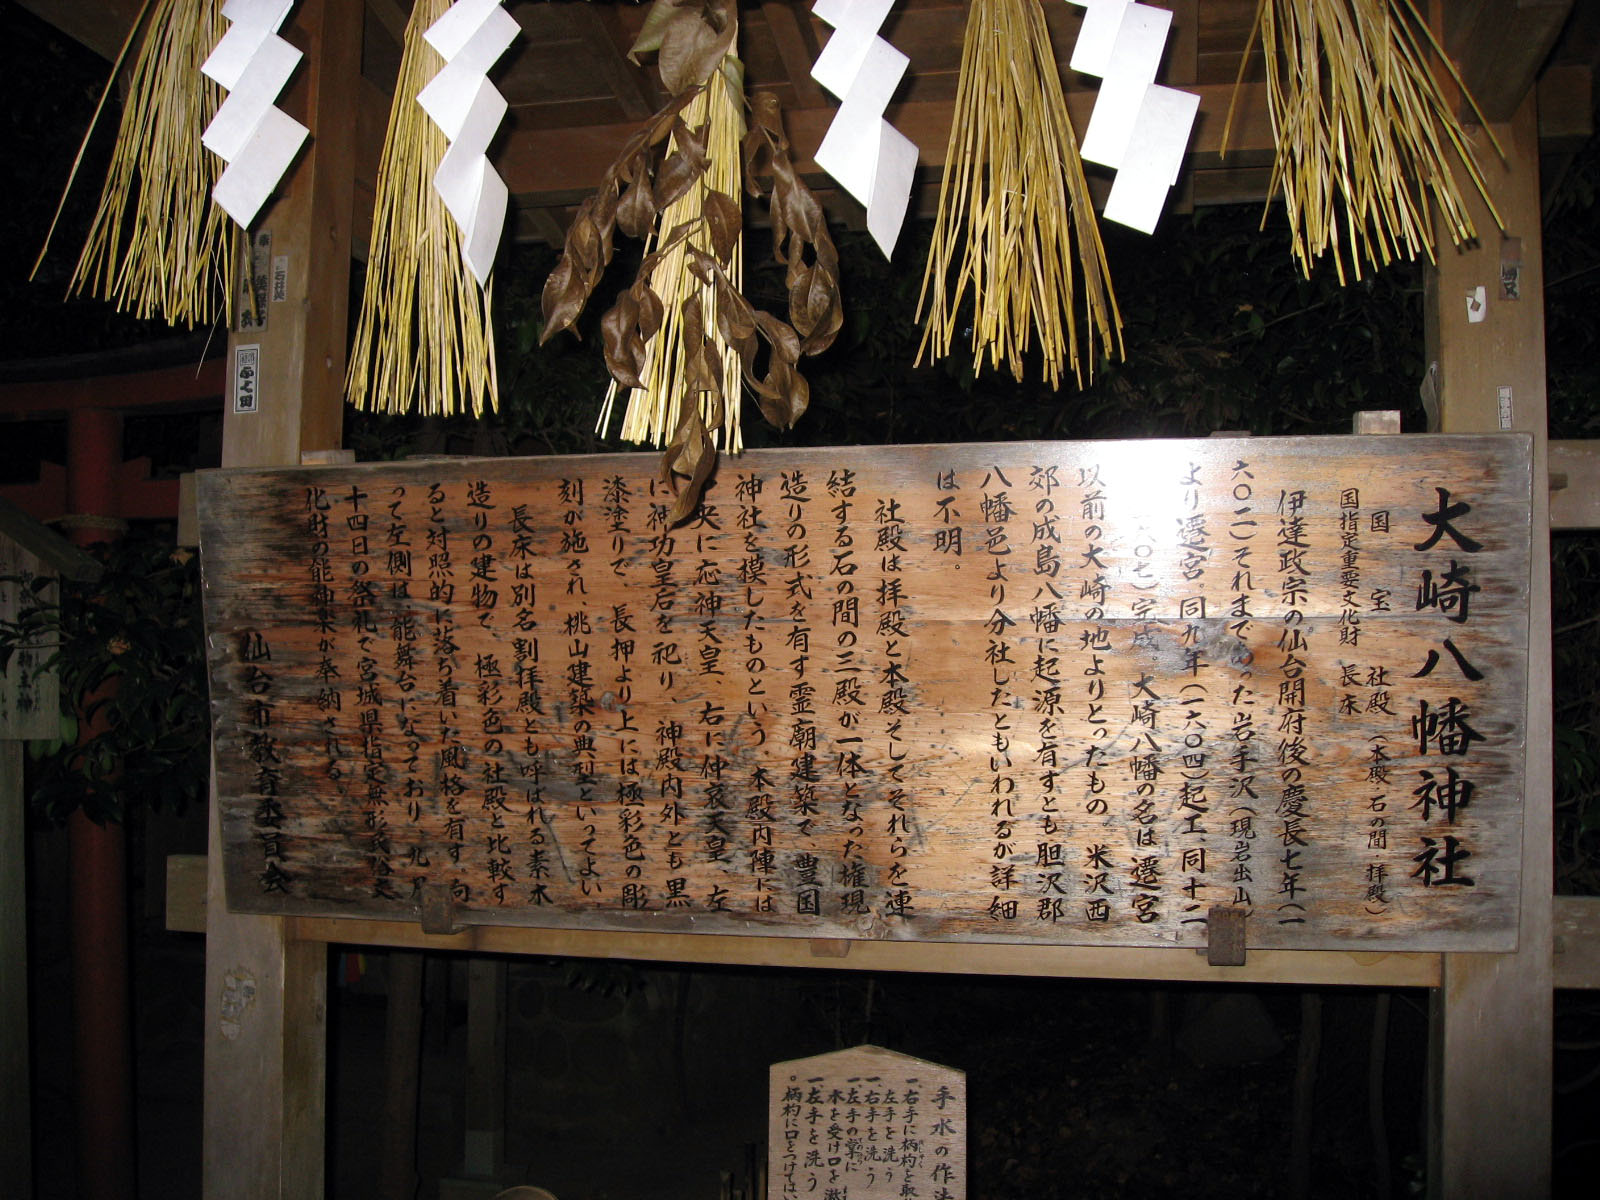 大崎八幡神社
国宝 社殿(本殿 石の間・拝殿)
国指定重要文化財 長床
伊達政宗の仙台開府後の慶長七年(一
六〇二)それまであった岩手沢(現岩出山)
より遷宮、同九年(一六〇四)起工、同十二
六〇七)完成。大崎八幡の名は遷宮
以前の大崎の地よりとったもの。米沢西
郊の成島八幡に起源を有すとも胆沢郡
八幡邑より分社したともいわれるが詳細
は不明。
社殿は拝殿と本殿そしてそれらを連
結する石の間の三殿が一体となった権現
造りの形式を有す霊廟建築で、豊国
神社を模したものという。本殿内陣には
央に応神天皇、右に仲哀天皇、左
に神功皇后を祀り、神殿内外とも黒
漆塗りで、長押より上には極彩色の彫
刻が施され、桃山建築の典型といってよい。
長床は別名割拝殿とも呼ばれる素木
造りの建物で、極彩色の社殿と比較す
ると対照的に落ち着いた風格を有す。向
って左側は、能舞台になっており、九月
十四日の祭礼で宮城県指定無形民俗文
化財の能神楽が奉納される。
仙台市教育委員会
手水の作法
一、右手に柄杓を取
左手を洗う
一、右手を洗う
一、左手の掌に
水を受け口を漱
一、左手を洗う
。柄杓に口をつけてはい
ふく田